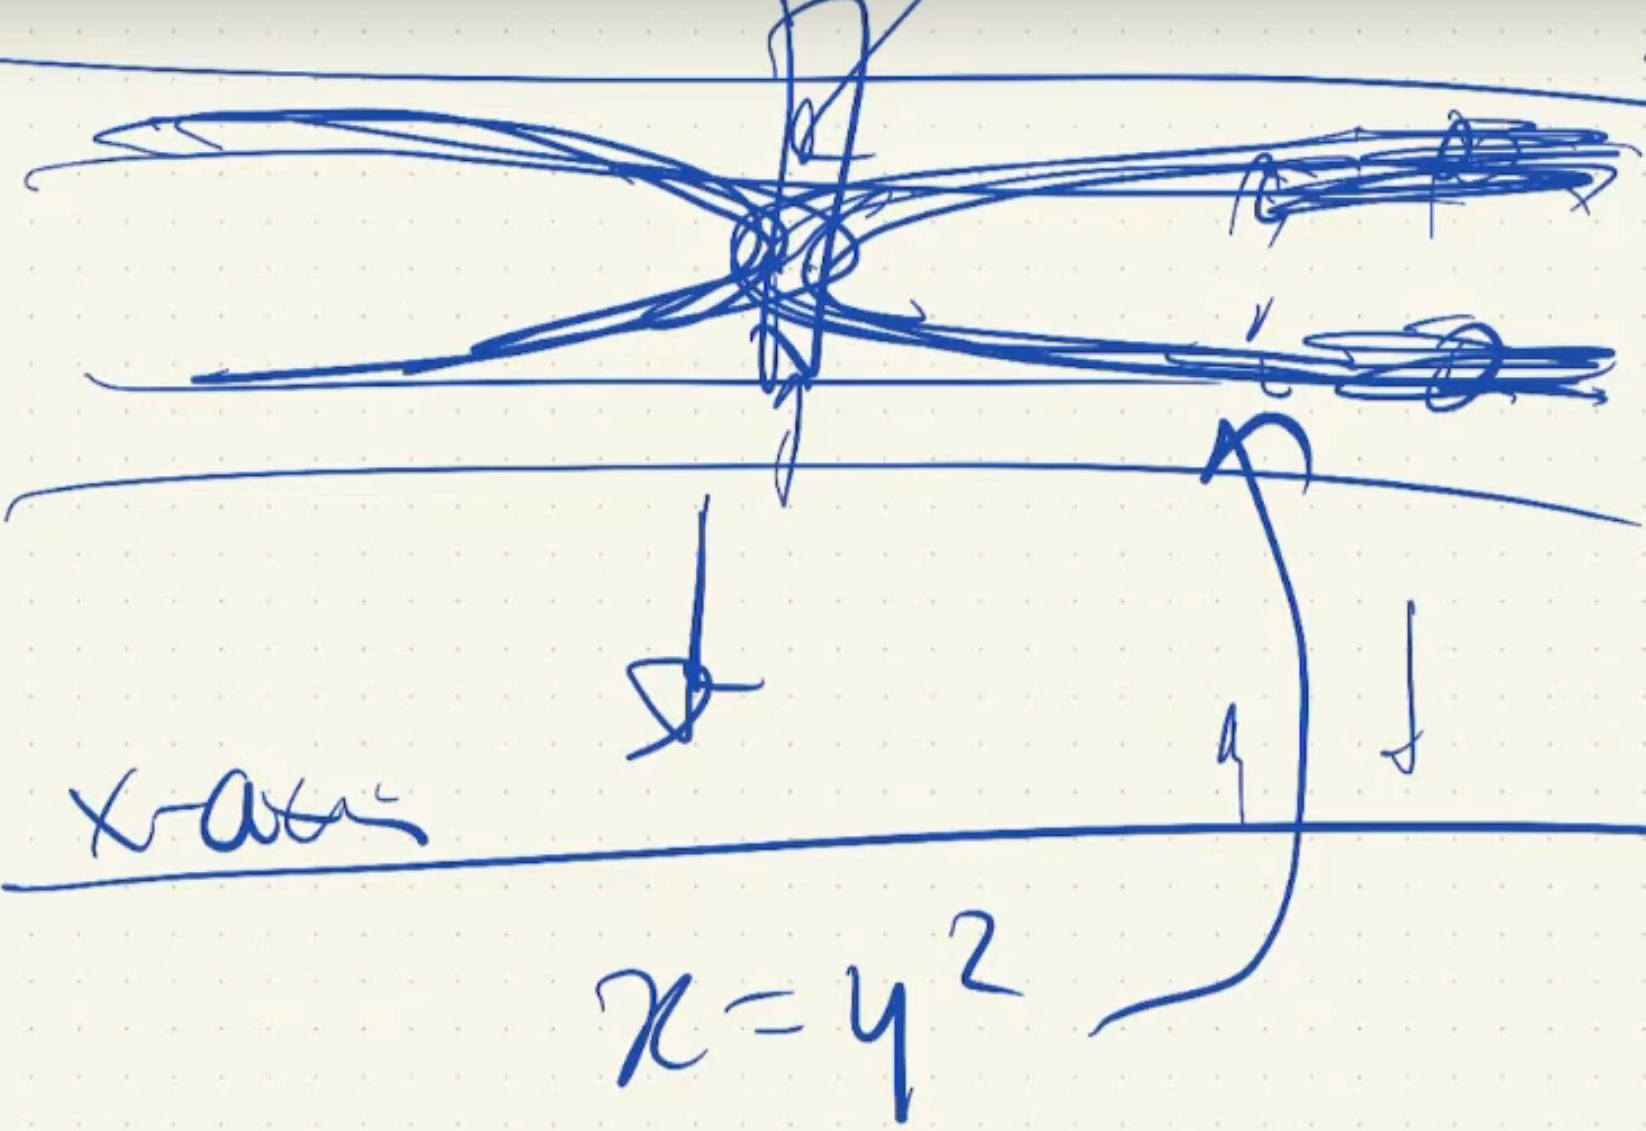 x-axis
x = y²